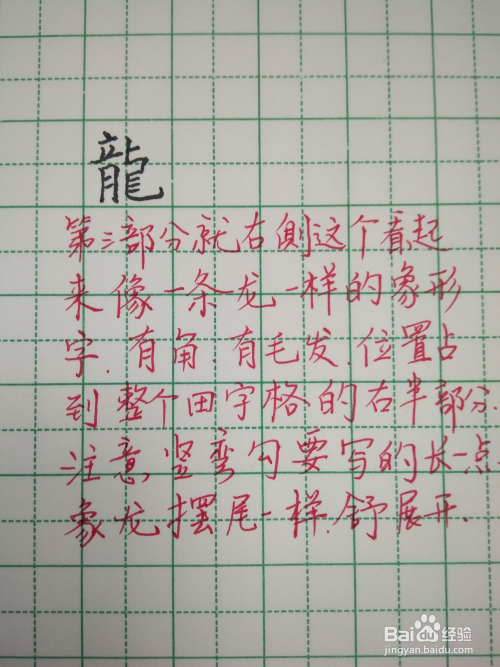 龍
第三部分就右侧这个看起
来像一条龙一样的象形
字.有角.有毛发.位置占
到整个田字格的右半部分.
注意竖弯勾要写的长一点
象龙摆尾一样.舒展开.
Baidu经验
jingyan.baidu.com